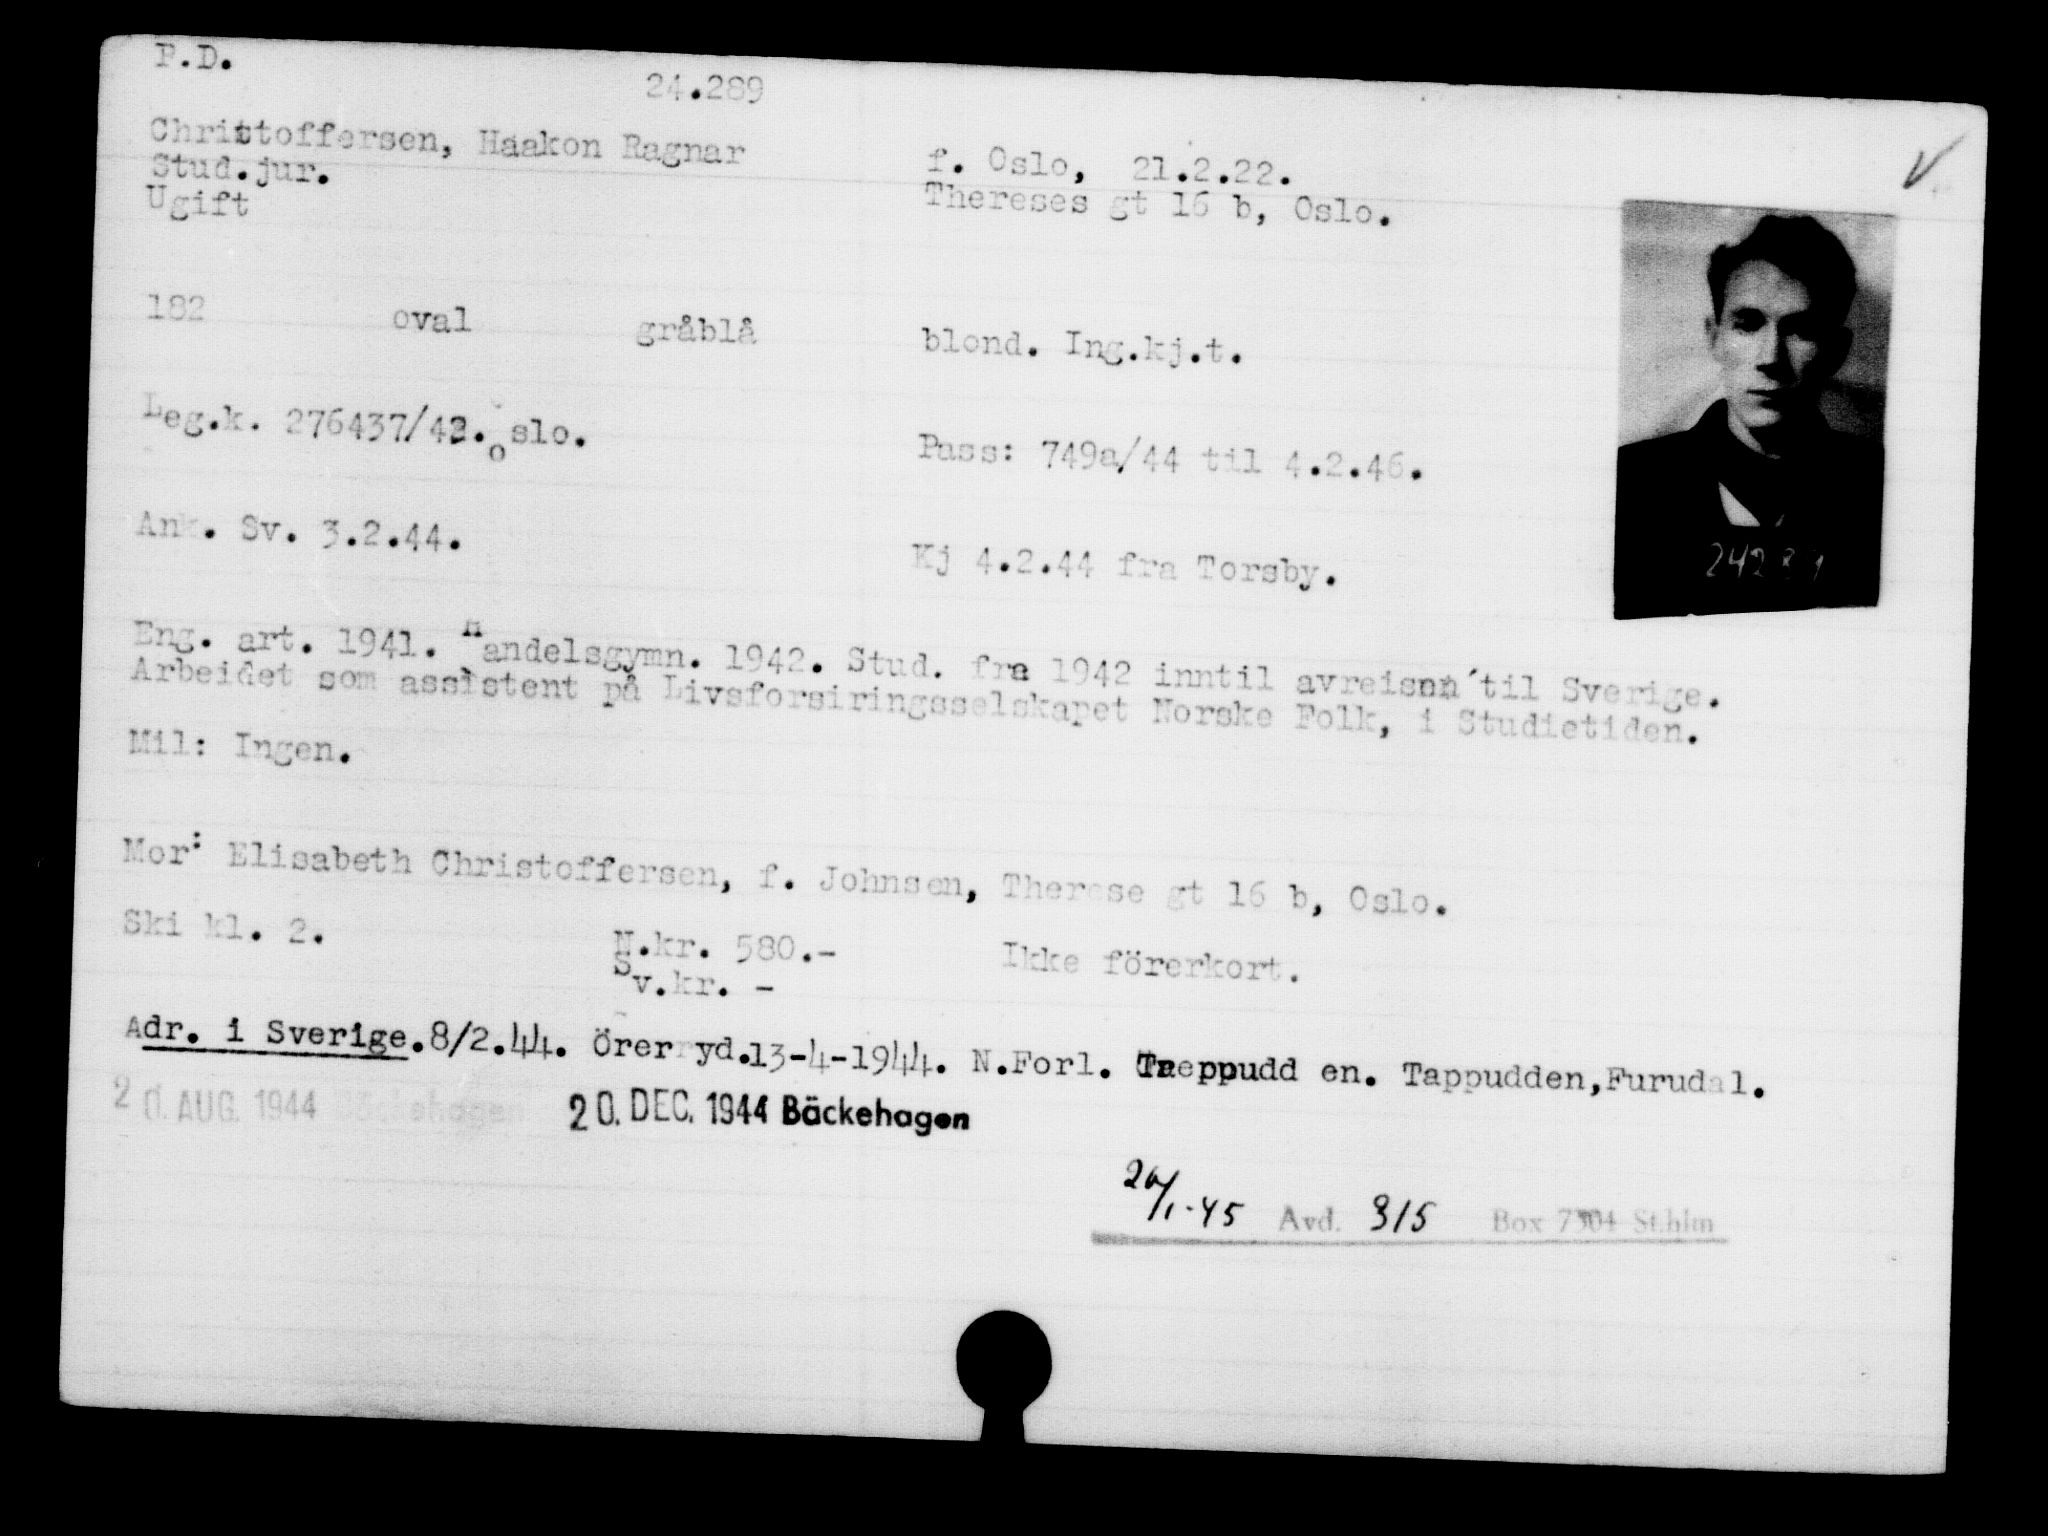 P.D.
24.289
Christoffersen, Haakon Ragnar
f. Oslo, 21.2.22.
Stud.jur.
Thereses gt 16 b, Oslo.
Ugift
182 oval gråblå blond. Ing.kj.t.
Leg.k. 276437/42. oslo.
Pass: 749a/44 til 4.2.46.
Ank. Sv. 3.2.44.
Kj 4.2.44 fra Torsby.
24289
Eng. art. 1941. Handelsgymn. 1942. Stud. fra 1942 inntil avreisen til Sverige.
Arbeidet som assistent på Livsforsiringsselskapet Norske Folk, i Studietiden.
Mil: Ingen.
Mor: Elisabeth Christoffersen, f. Johnsen, Therese gt 16 b, Oslo.
Ski kl. 2.
N.kr. 580.-
Ikke förerkort.
Sv.kr. -
Adr. i Sverige.8/2.44. Örerryd.13-4-1944. N.Forl. Tappudden. Tappudden,Furudal.
20. AUG. 1944 Bäckehagen 20. DEC. 1944 Bäckehagen
26/1-45 Avd. 315 Box 7304 St.hlm